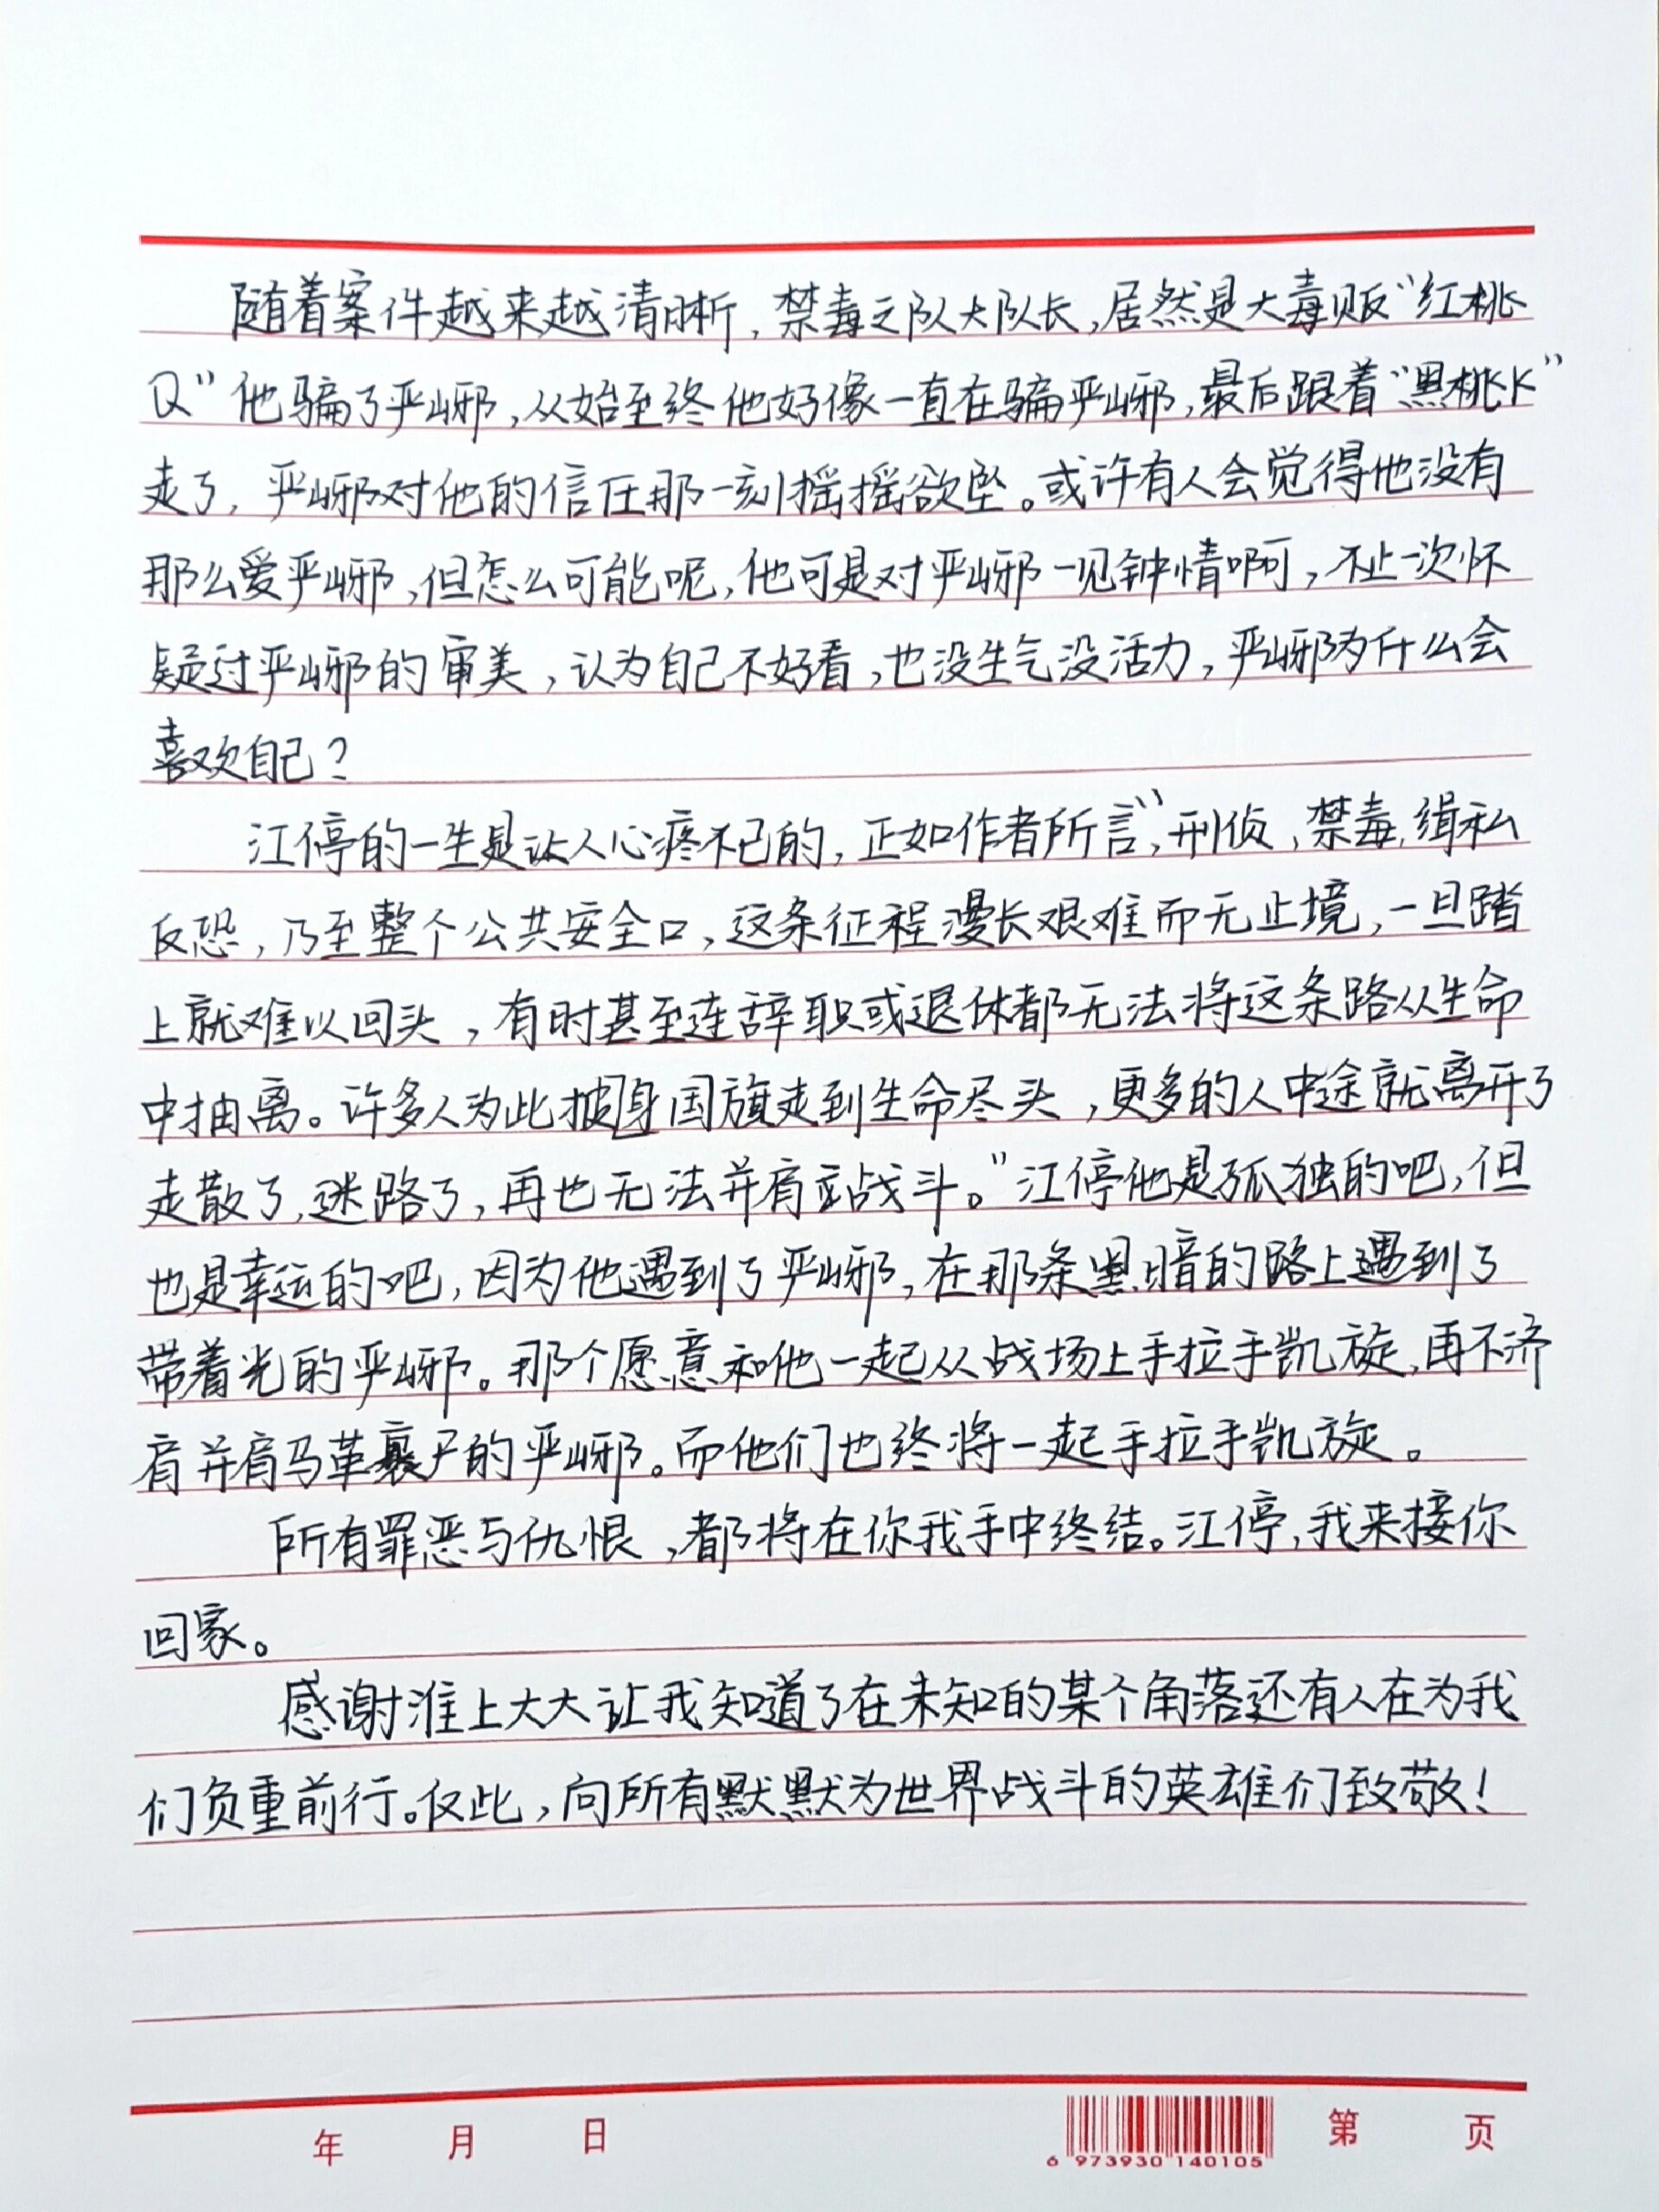 随着案件越来越清晰，禁毒支队大队长，居然是大毒贩“红桃
Q”他骗了严峫，从始至终他好像一直在骗严峫，最后跟着“黑桃K”
走了，严峫对他的信任那一刻摇摇欲坠。或许有人会觉得他没有
那么爱严峫，但怎么可能呢，他可是对严峫一见钟情啊，不止一次怀
疑过严峫的审美，认为自己不好看，也没生气没活力，严峫为什么会
喜欢自己？
江停的一生是让人心疼不已的，正如作者所言，“刑侦，禁毒，缉私
反恐，乃至整个公共安全口，这条征程漫长艰难而无止境，一旦踏
上就难以回头，有时甚至连辞职或退休都无法将这条路从生命
中抽离。许多人为此披身国旗走到生命尽头，更多的人中途就离开了
走散了，迷路了，再也无法并肩战斗。”江停他是孤独的吧，但
也是幸运的吧，因为他遇到了严峫，在那条黑暗的路上遇到了
带着光的严峫。那个愿意和他一起从战场上手拉手凯旋，再不济
肩并肩马革裹尸的严峫。而他们也终将一起手拉手凯旋。
所有罪恶与仇恨，都将在你我手中终结。江停，我来接你
回家。
感谢淮上大大让我知道了在未知的某个角落还有人在为我
们负重前行。仅此，向所有默默为世界战斗的英雄们致敬！
年 月 日 6 973930 140105 第 页